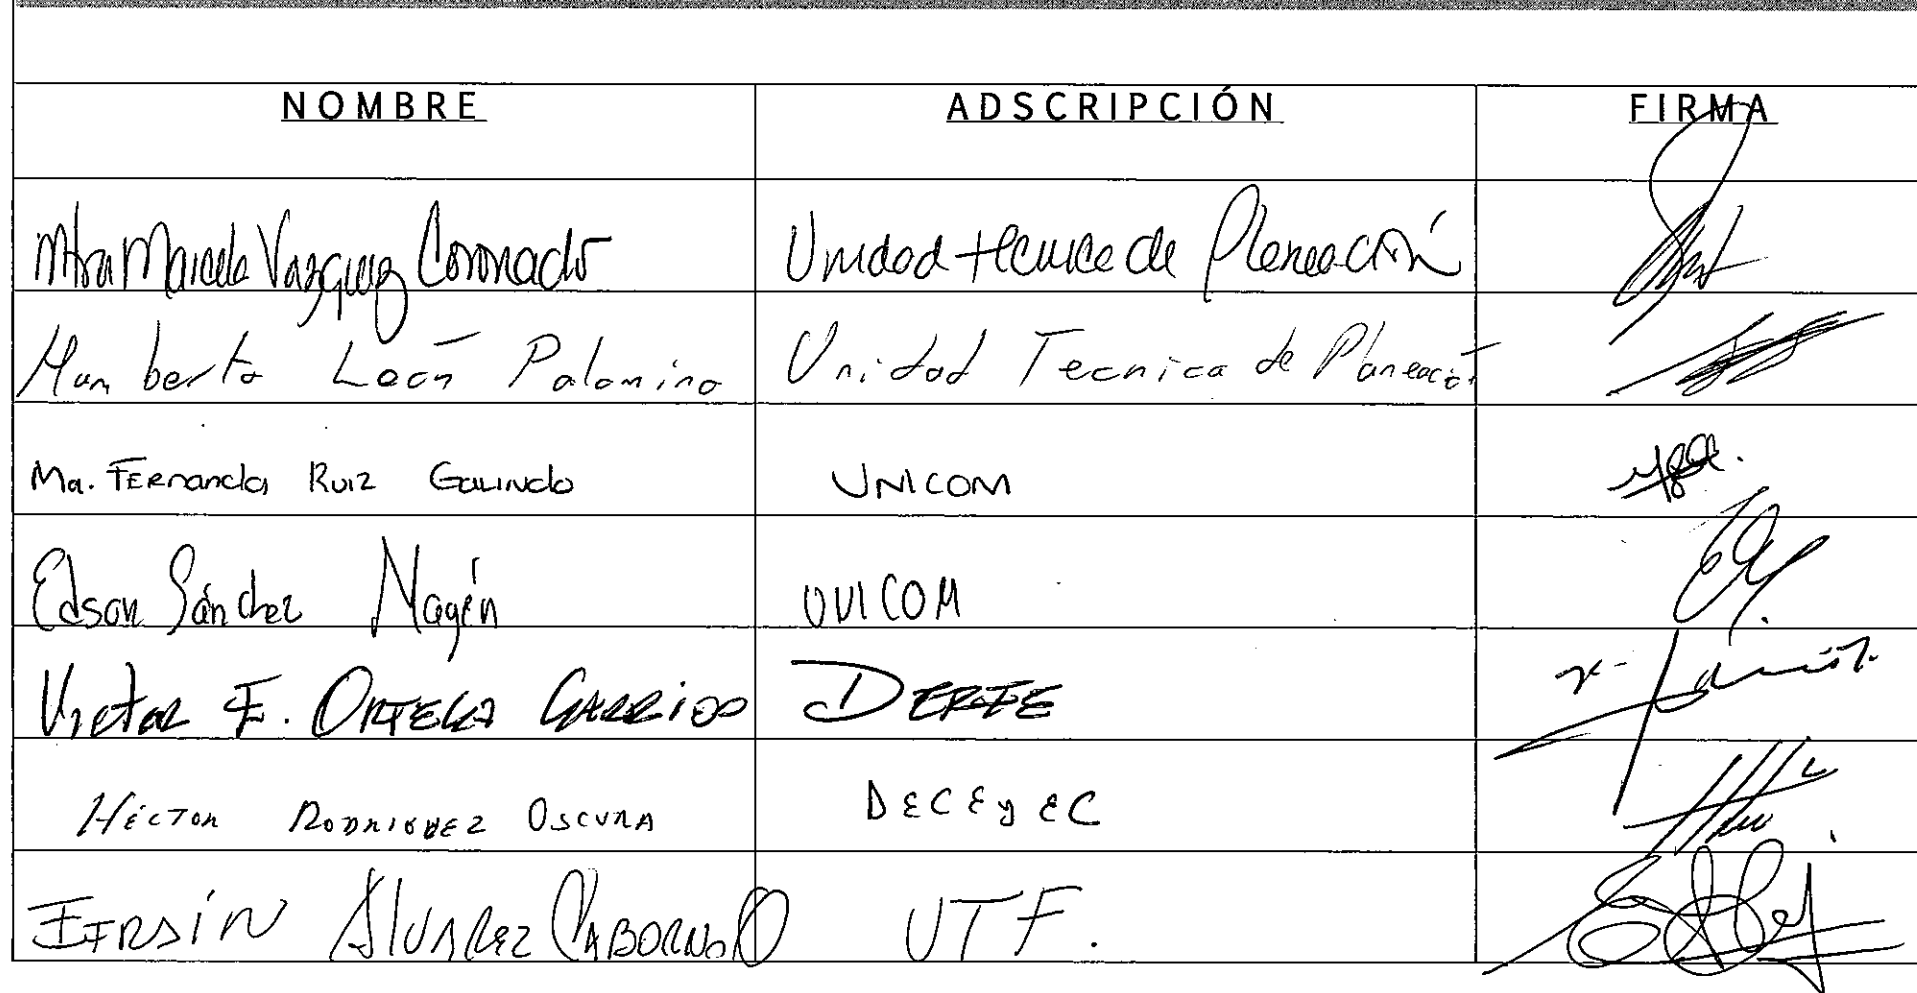 NOMBRE ADSCRIPCIÓN FIRMA
Mtra Marcela Vazquez Coronado Unidad tecnica de Planeación
Humberto León Palomino Unidad Tecnica de Planeación
Ma. Fernanda Ruiz Galindo UNICOM
Edson Sánchez Magén UNICOM
Victor F. ORTEGA GARRIDO DERFE
Héctor Rodriguez Oscura DECEyEC
Efrsín Alvarez Caborno UTF.